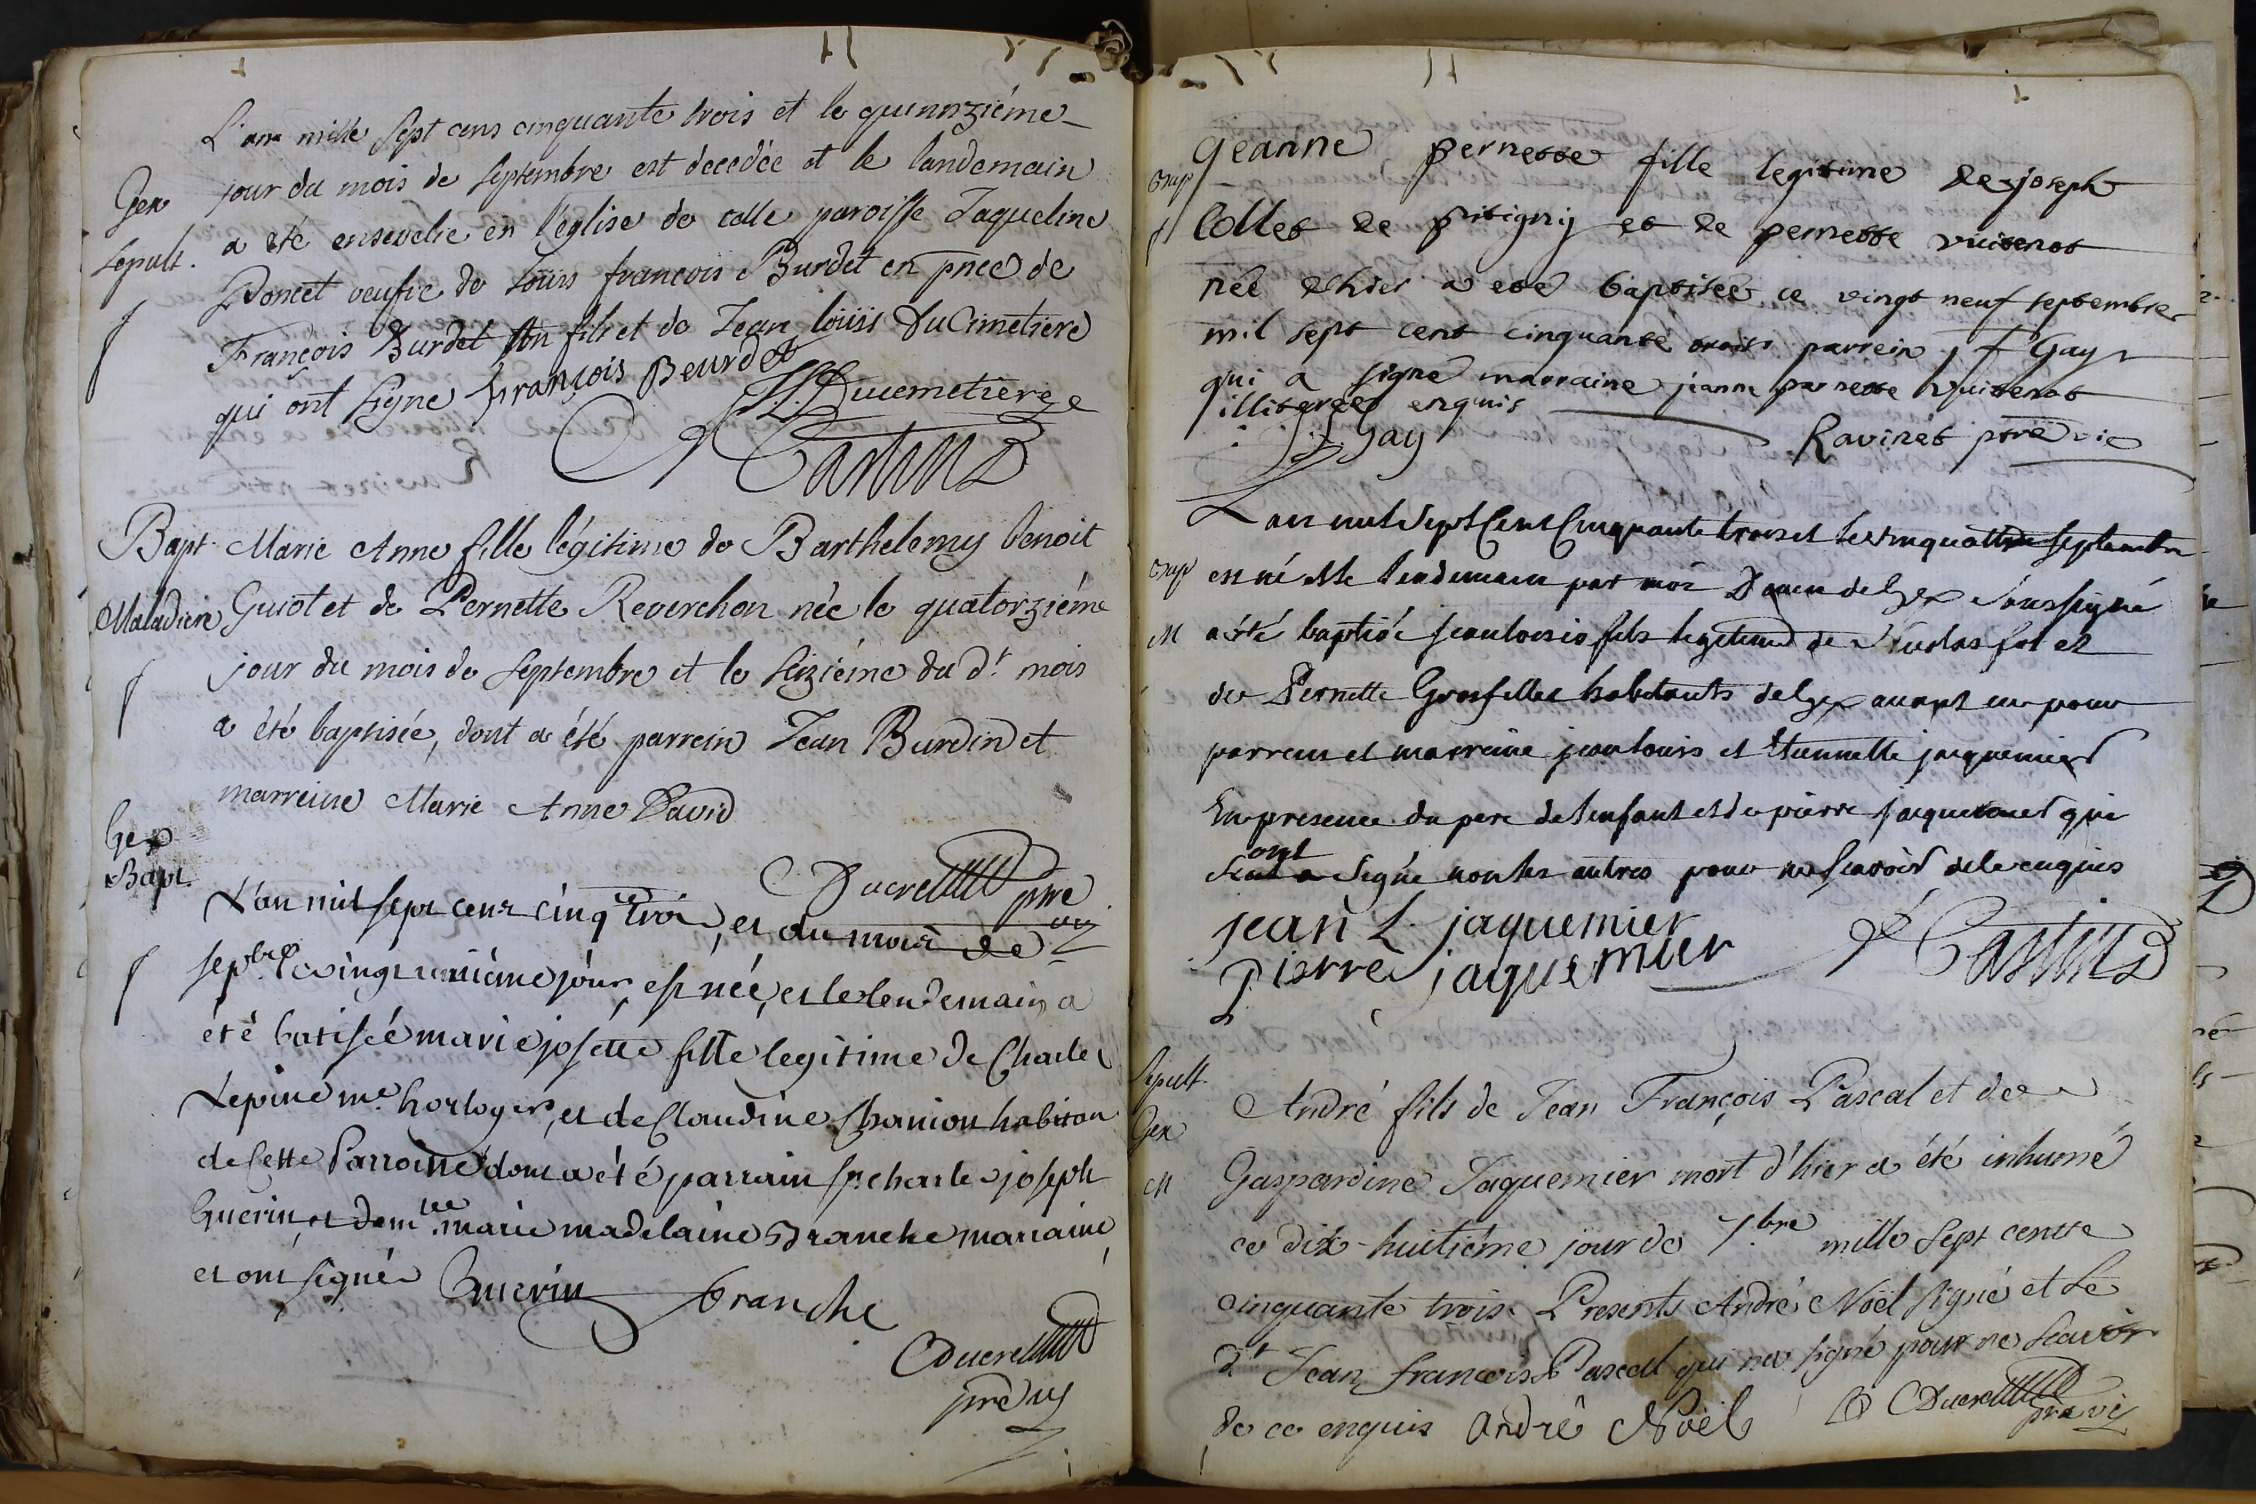 L'an mille sept cens cinquante trois et le quinnziéme
Gex jour du mois de septembre est decedée et le landemain
sepult. a été ensevelie en l'eglise de cette paroisse Jaqueline
Poncet veufve de Louis françois Burdet en pnce de
François Burdet son fils et de Jean loüis DuCimetiere
qui ont signe françois Beurdet
JL Ducemetiere
Castin
Bapt. Marie Anne fille légitime de Barthelemy benoit
Maladiere Guiot et de Pernette Reverchon née le quatorziéme
jour du mois de septembre et le seiziéme du dt. mois
a été baptisée, dont a été parrein Jean Burdin et
marreine Marie Anne David
Ducret pre vic
Gex
Bapt.
L'an mil sept cent cinqte trois, et du mois de
sepbre le vingt unième jour est née, et le lendemain a
été batisée marie josette fille legitime de Charle
Lepine me. horloger, et de Claudine Chanion habitan
de Cette Parroisse dont a été parrain sr. charle joseph
Guerin, et demlle marie madelaine Branche marraine
et ont signé Guerin branche
Ducret
pre vic
bap Jeanne pernette fille legitime de joseph
f Collet de pitigny et de pernette vuitenot
née d'hier a été baptisée ce vingt neuf septembre
mil sept cent cinquante trois parrein j f Gay
qui a signé marraine jeanne pernette vuitenot
illiteree enquis
Gay Ravinet ptre vic
L'an mil sept Cent Cinquante trois et le vingquattre septembre
bap est né et le lendemain par moi Doien de Gex soussigné
M a été baptisé jean louis fils legitime de Nicolas fol et
de Pernette Grosfilley habitants de Gex aiant eu pour
parrein et marreine jean louis et Etiennette jaquemier
En presence du pere de l'enfant et de pierre jaquemier qui
ont
signé non les autres pour ne scavoir de le enquis
jean L. jaquemier
pierre jaquemier Castin
Sepult. André fils de Jean François Pascal et de
Gex
M Gaspardine Jaquemier mort d'hier a été inhumé
ce dix-huitiéme jour de 7.bre mille sept cente
cinquante trois. Presents André Noël signé et le
dt. Jean françois Pascal qui n'a signé pour ne scavoir
de ce enquis andré Noël Ducret pre vic